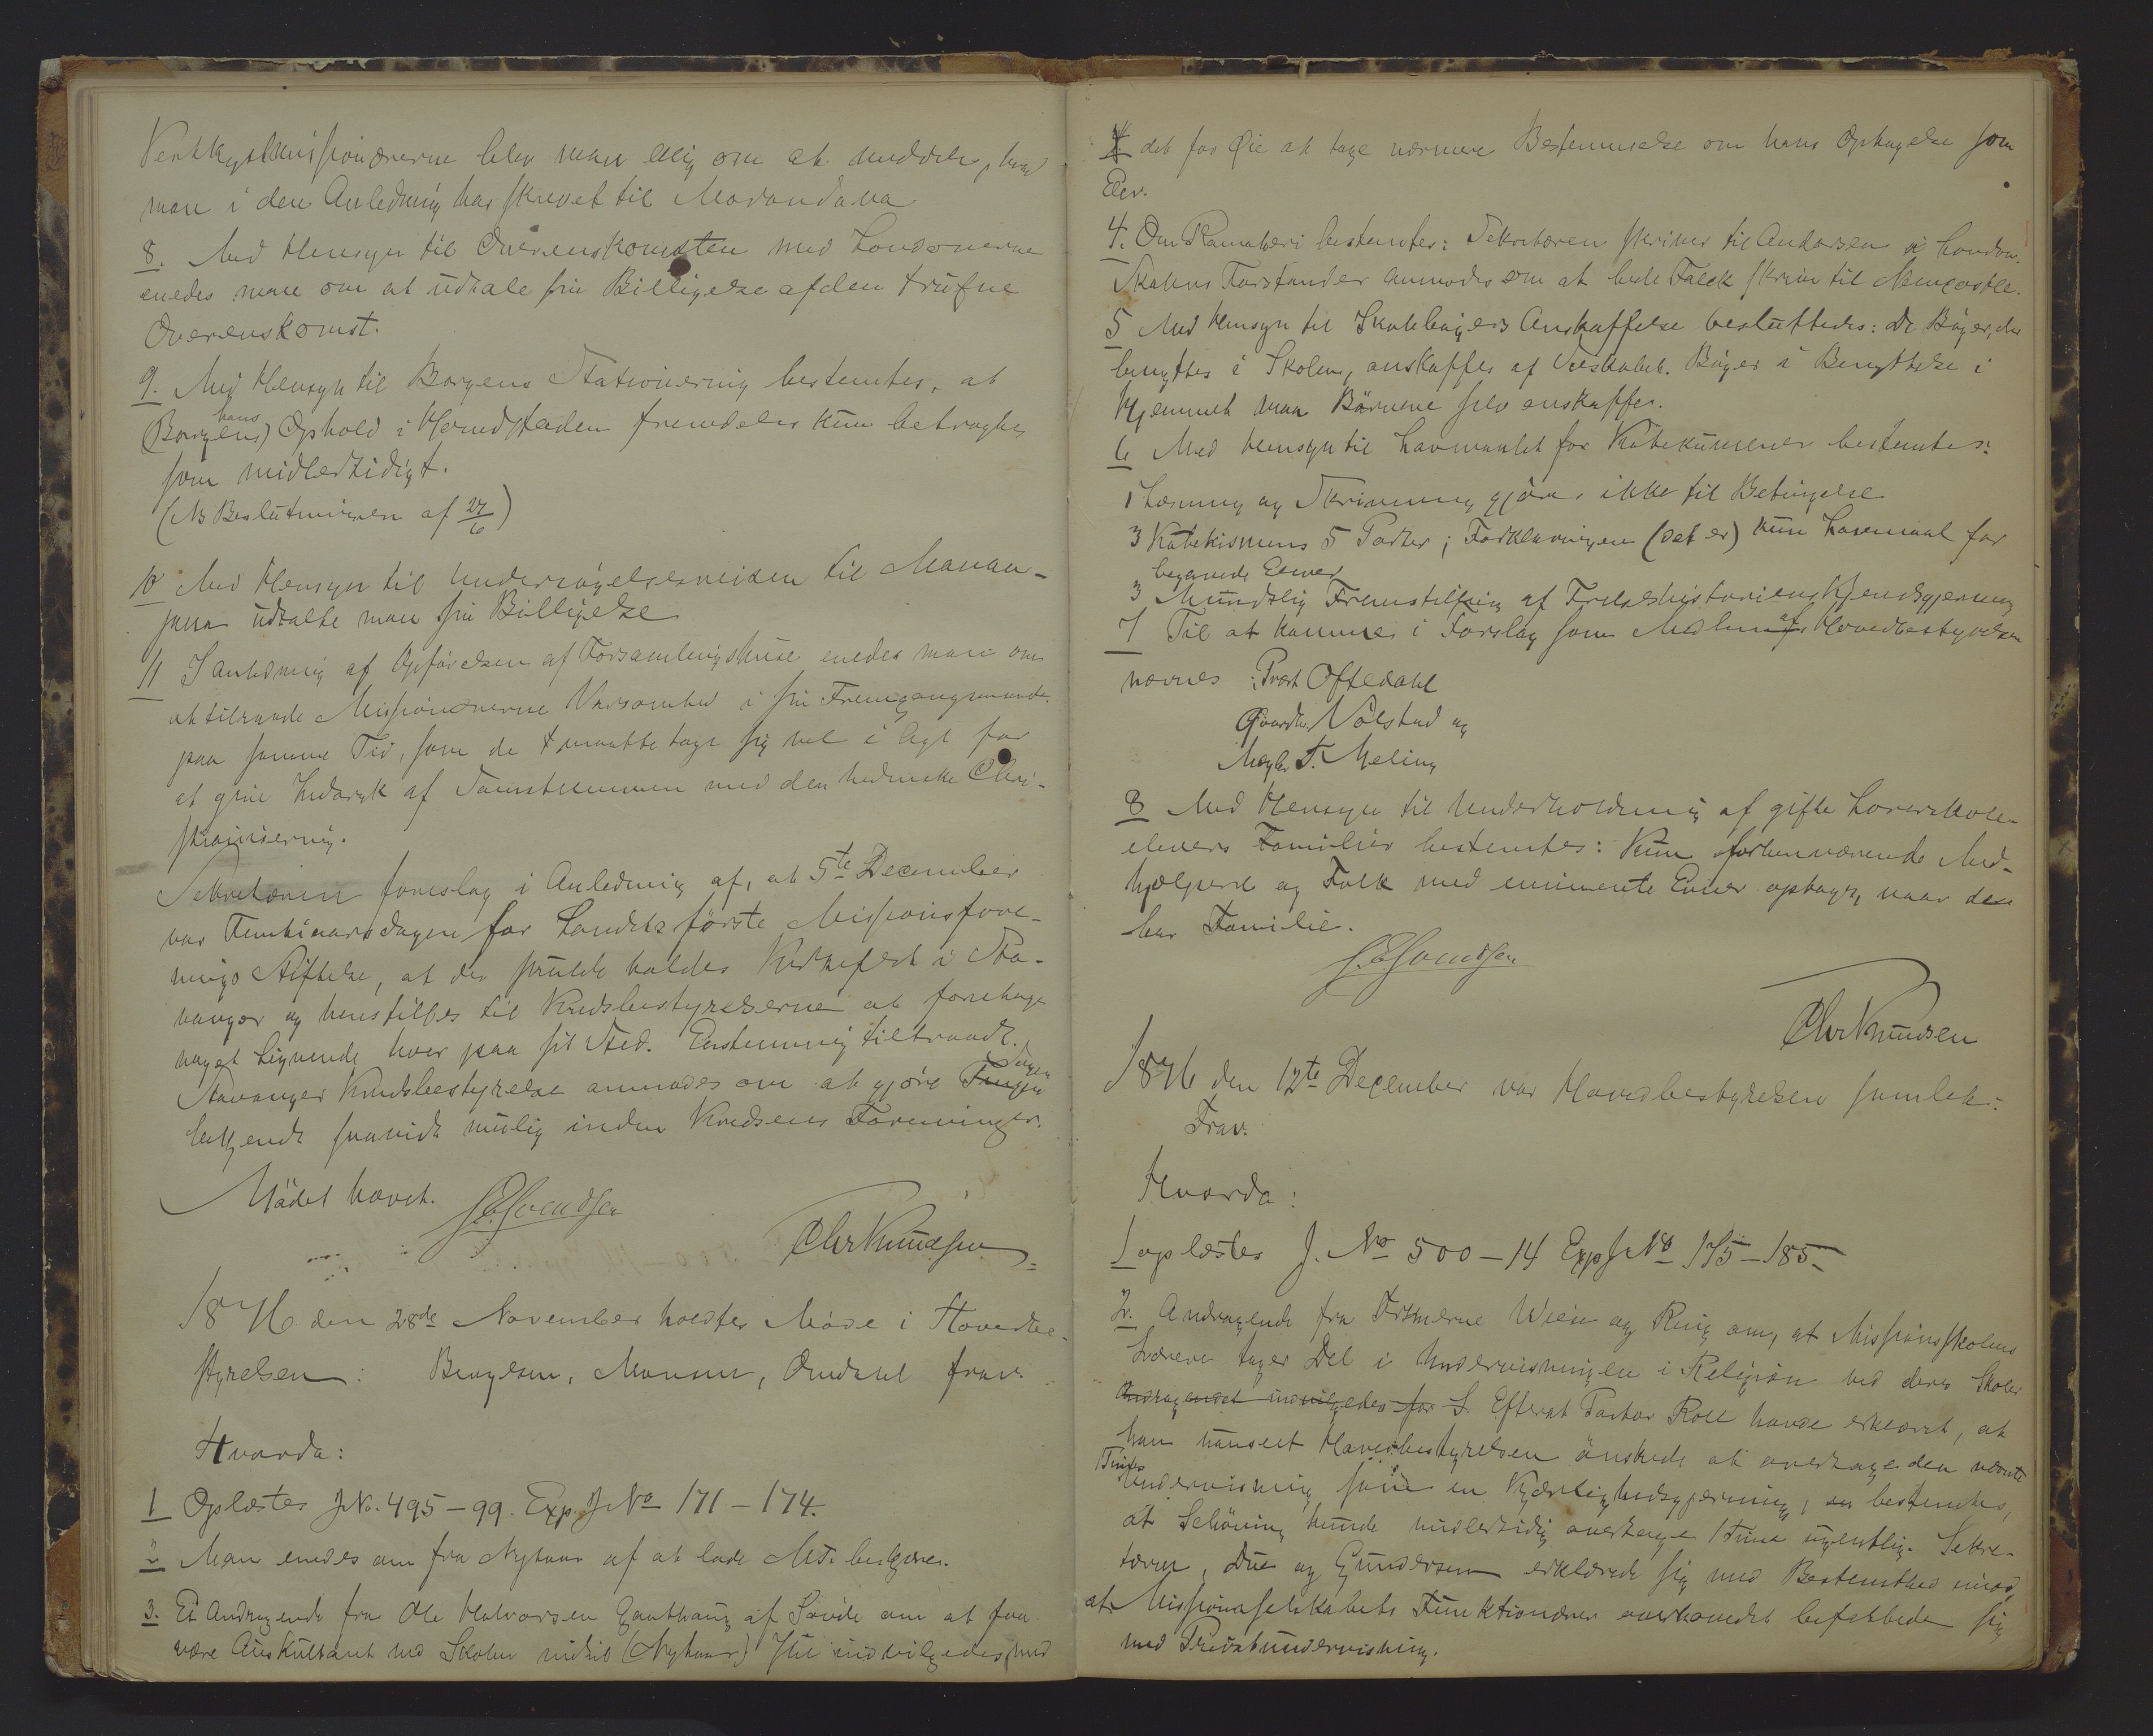 Vestkystmissionærerne blev man enig om at meddele, hvad
man i den Anledning har skrevet til Morondava
8. Med Hensyn til Overenskomsten med Londonerne
enedes man om at udtale sin Billigelse af den trufne
Overenskomst.
9. Med Hensyn til Borgens Stationering bestemtes, at
hans
(Borgens) Ophold i Hovedstaden fremdeles kun betragtes
som midlertidigt.
(Nb Beslutningen af 27/6)
10 Med Hensyn til Undersøgelsesreisen til Manan-
jara udtalte man sin Billigelse
11 I anledning af Opførelsen af Forsamlingshuse enedes man om
at tilraade Missionærerne Varsomhed i sin Fremgangsmaade
paa samme Tid, som de maatte tage sig vel i Agt for
at give Indtryk af Samstemmen med den hedenske Chri-
stianisering.
Sekretæren foreslog i Anledning af, at 5te December
var Femtiaarsdagen for Landets første Missionsfore-
nings Stiftelse, at der skulde holdes Kirkefest i Sta-
vanger og henstilles til Kredsbestyrelserne at foretage
noget Lignende hver paa sit Sted. Enstemmig tiltraadt.
Stavanger Kredsbestyrelse anmodes om at gjøre Dagen
bekjendt saavidt mulig inden Kredsens Foreninger.
Mødet hævet. S.E. Svendsen
Chr Knudsen
1876 den 28de November holdtes Møde i Hovedbe-
styrelsen: Bengtson, Monsen, Omdahl frav.
Hvorda:
1 Oplæstes J No. 495-99. Exp. J No 171-174.
2 Man enedes om fra Nytaar af at lade MT. beskjære.
3. Et Andragende fra Ole Halvorsen Gauthaug af Søvde om at faa
være Auskultant ved Skolen indtil (Nytaar) Jul indvilgedes, med
det for Øie at tage nærmere Bestemmelse om hans Optagelse som
Elev.
4. Om Ramaberi bestemtes: Sekretæren skriver til Andersen i London.
Skolens Forstander anmodes om at lade Falck skrive til Newcastle.
5 Med Hensyn til Skolebøgers Anskaffelse besluttedes: De Bøger, der
benyttes i Skolen, anskaffes af Selskabet. Bøger i Benyttelse i
Hjemmet maa Børnene selv anskaffe.
6 Med Hensyn til Læremaalet for Katekumener bestemtes:
1 Læsning og Skrivning gjøres ikke til Betingelse
3 Katekismens 5 Parter; Forklaringen (det er) kun Læremaal for
begavede Elever
3 Mundtlig Fremstilling af Frelseshistoriens Kjendsgjerning
7 Til at komme i Forslag som Medlem af Hovedbestyrelsen
nævnes: Præst Oftedahl
Gaardb. Nølstad og
Mægler T. Meling
8 Med Hensyn til Underholdning af gifte Lærerskole-
elevers Familier bestemtes: Kun forhenværende Med-
hjælpere og Folk med eminente Evner optages, naar de
har Familie.
S.E. Svendsen
Chr Knudsen
1876 den 12te December var Hovedbestyrelsen samlet:
Frav.
Hvorda:
1 oplæstes J. No 500-14 Exp J No 175-185
2. Andragende fra Frknerne Wiein og Ring om, at Missionsskolens
Lærere tager Del i Undervisningen i Religion ved deres Skoler
Andragendet indvilgedes for S. Efterat Pastor Roll havde erklæret, at
han uanseet Hovedbestyrelsen ønskede at overtage den nævnte
Times
Undervisning som en Kjærlighedsgjerning, bestemtes,
at Schøning kunde midlertidig overtage 1 Time ugentlig. Sekre-
tæren, Due og Gundersen erklærede sig med Bestemthed imod,
at Missionsselskabets Funktionærer overhovedet befattede sig
med Privatundervisning.